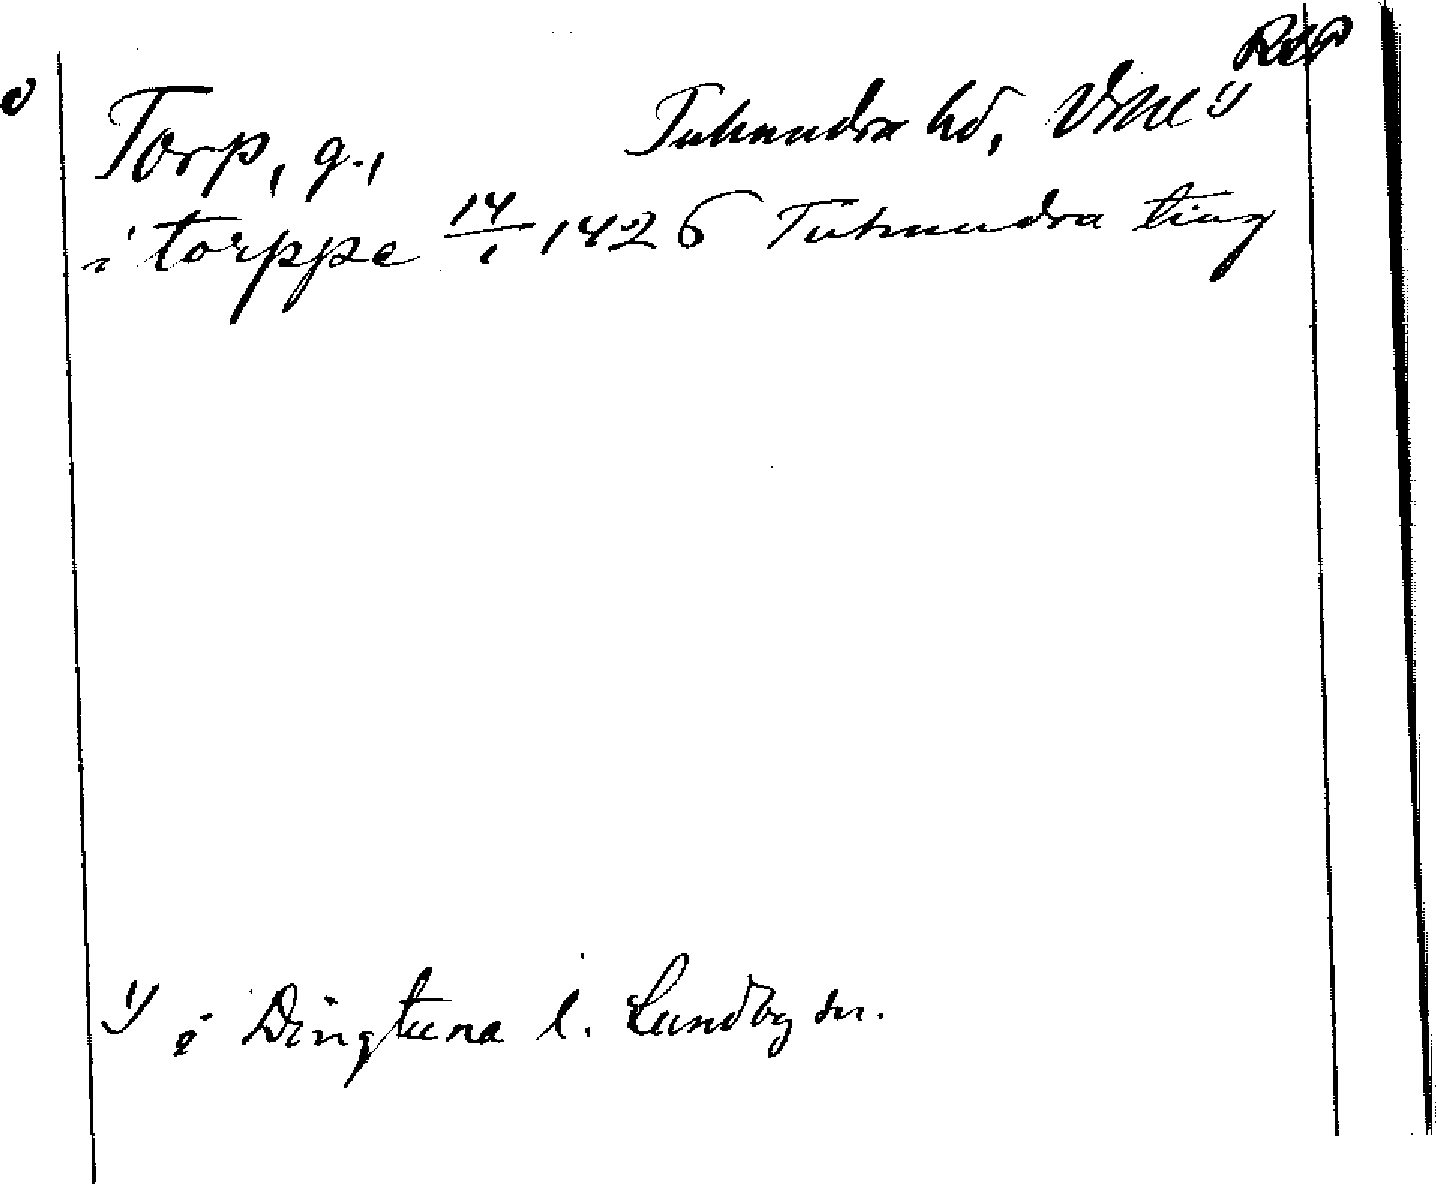 RAP
Torp, g., Tuhundra hd, Vstml 1)
i torppe 14/1 1426 Tuhundra ting
1) i Dingtuna l. Lundby sn.